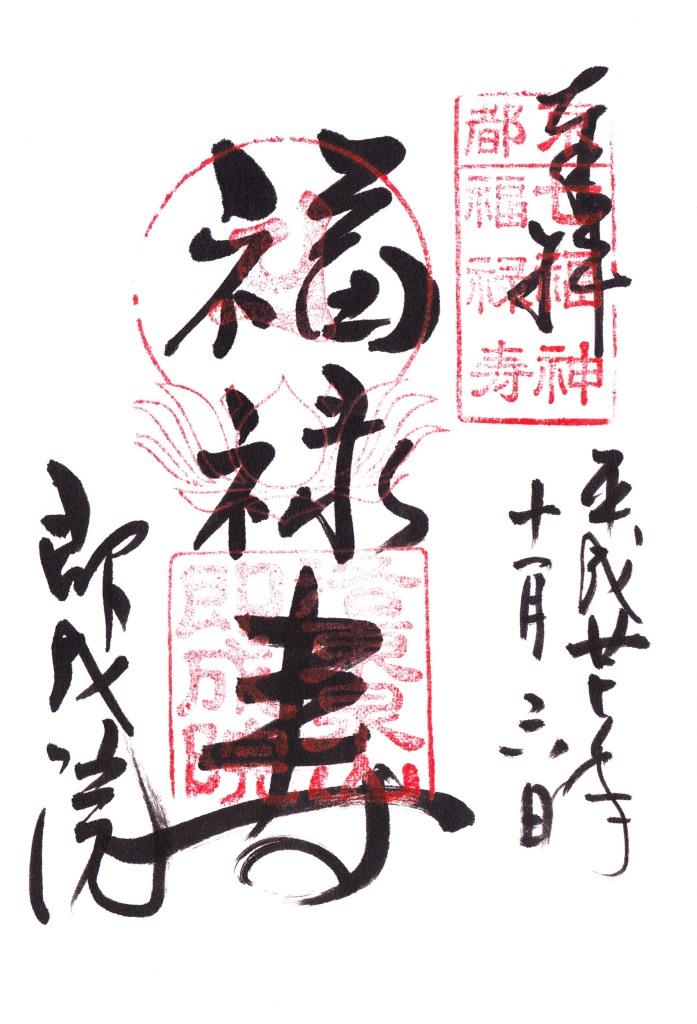 奉拝
京都
七福神
福禄寿
平成廿七年
十一月三日
福禄寿
即成院
即成院